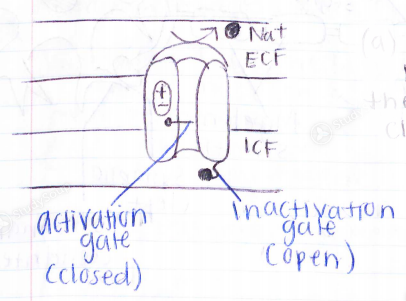 Na+
ECF
+
-
ICF
activation
gate
(closed)
inactivation
gate
(open)